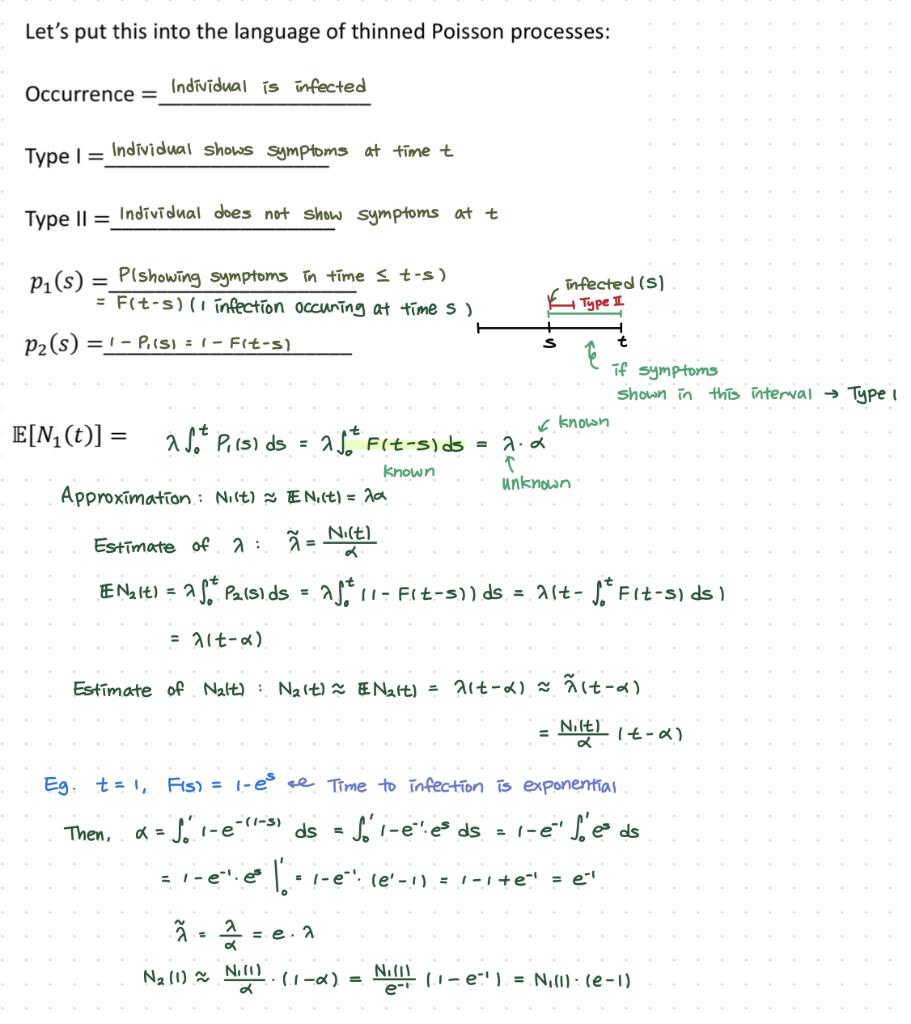 Let's put this into the language of thinned Poisson processes:
Occurrence = Individual is infected
Type I = Individual shows symptoms at time t
Type II = Individual does not show symptoms at t
p₁(s) = P(showing symptoms in time ≤ t-s)
= F(t-s) (1 infection occuring at time s)
p₂(s) = 1 - P₁(s) = 1 - F(t-s)
infected (s)
Type II
s t
if symptoms
shown in this interval → Type I
𝔼[N₁(t)] = λ∫₀ᵗ P₁(s) ds = λ∫₀ᵗ F(t-s) ds = λ · α
known
known
unknown
Approximation : N₁(t) ≈ 𝔼N₁(t) = λα
Estimate of λ : λ̃ = N₁(t)/α
𝔼N₂(t) = λ∫₀ᵗ P₂(s) ds = λ∫₀ᵗ (1 - F(t-s)) ds = λ(t - ∫₀ᵗ F(t-s) ds)
= λ(t-α)
Estimate of N₂(t) : N₂(t) ≈ 𝔼N₂(t) = λ(t-α) ≈ λ̃(t-α)
= N₁(t)/α (t-α)
Eg. t = 1, F(s) = 1-eˢ Time to infection is exponential
Then, α = ∫₀¹ 1-e⁻⁽¹⁻ˢ⁾ ds = ∫₀¹ 1-e⁻¹·eˢ ds = 1-e⁻¹ ∫₀¹ eˢ ds
= 1-e⁻¹·eˢ |₀¹ = 1-e⁻¹·(e¹-1) = 1-1+e⁻¹ = e⁻¹
λ̃ = λ/α = e·λ
N₂(1) ≈ N₁(1)/α · (1-α) = N₁(1)/e⁻¹ (1-e⁻¹) = N₁(1)·(e-1)